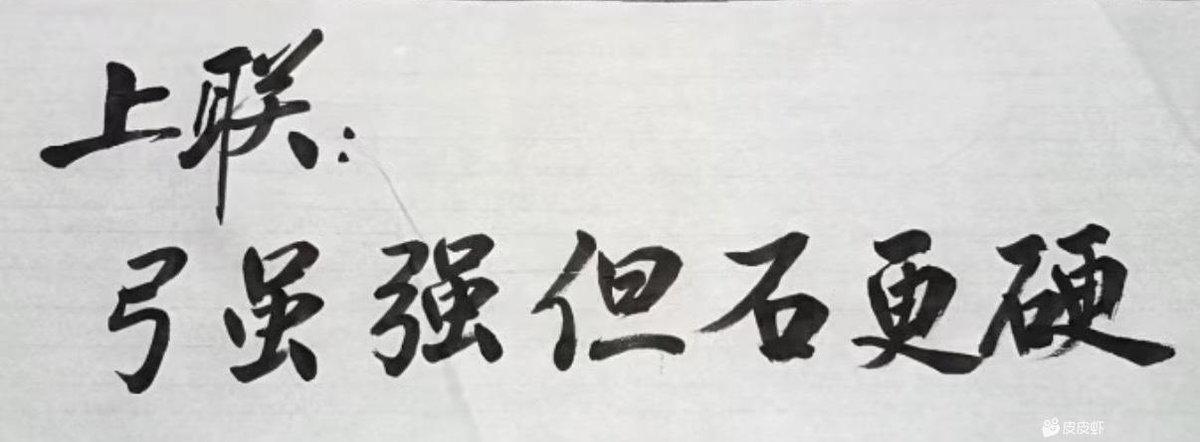 上联：
弓虽强但石更硬
皮皮虾